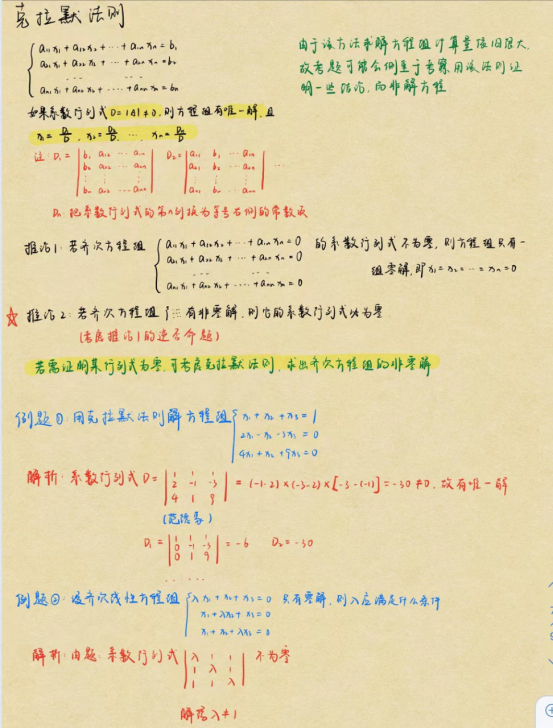 克拉默法则
a₁₁x₁ + a₁₂x₂ + ⋯ + a₁ₙxₙ = b₁
a₂₁x₁ + a₂₂x₂ + ⋯ + a₂ₙxₙ = b₂
⋯ ⋯
aₙ₁x₁ + aₙ₂x₂ + ⋯ + aₙₙxₙ = bₙ
由于该方法求解方程组计算量依旧很大,
故考题可能会侧重于考察用该法则证
明一些结论,而非解方程
如果系数行列式D=|A|≠0,则方程组有唯一解,且
x₁ = D₁/D, x₂ = D₂/D, ⋯, xₙ = Dₙ/D
注: D₁ = | b₁ a₁₂ ⋯ a₁ₙ | D₂ = | a₁₁ b₁ ⋯ a₁ₙ | ⋯
| b₂ a₂₂ ⋯ a₂ₙ | | a₂₁ b₂ ⋯ a₂ₙ |
| ⋮ ⋮ ⋮ | | ⋮ ⋮ ⋮ |
| bₙ aₙ₂ ⋯ aₙₙ | | aₙ₁ bₙ ⋯ aₙₙ |
Dₙ: 把系数行列式的第n列换为等号右侧的常数项
推论1: 若齐次方程组
a₁₁x₁ + a₁₂x₂ + ⋯ + a₁ₙxₙ = 0
a₂₁x₁ + a₂₂x₂ + ⋯ + a₂ₙxₙ = 0
⋯ ⋯
aₙ₁x₁ + aₙ₂x₂ + ⋯ + aₙₙxₙ = 0
的系数行列式不为零,则方程组只有一
组零解,即x₁=x₂=⋯=xₙ=0
☆ 推论2: 若齐次方程组{⋯有非零解,则它的系数行列式必为零
(考虑推论1的逆否命题)
若需证明某行列式为零,可考虑克拉默法则,求出齐次方程组的非零解
例题①: 用克拉默法则解方程组
x₁ + x₂ + x₃ = 1
2x₁ - x₂ - 3x₃ = 0
4x₁ + x₂ + 9x₃ = 0
解析: 系数行列式D = | 1 1 1 | = (-1-2)×(-3-2)×[-3-(-1)] = -30 ≠ 0, 故有唯一解
| 2 -1 -3 |
| 4 1 9 |
(范德蒙)
D₁ = | 1 1 1 | = -6 D₂ = -30
| 0 -1 -3 |
| 0 1 9 |
⋯ ⋯
例题②: 设齐次线性方程组
λx₁ + x₂ + x₃ = 0
x₁ + λx₂ + x₃ = 0
x₁ + x₂ + λx₃ = 0
只有零解,则λ应满足什么条件
解析: 由题: 系数行列式 | λ 1 1 | 不为零
| 1 λ 1 |
| 1 1 λ |
解得 λ≠1